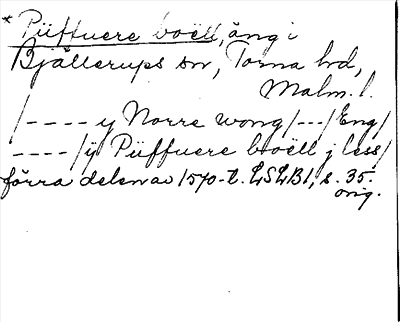 * Püffuere boëll, äng i
Bjällerups sn, Torna hd,
Malm. l.
/---- y Norre wong/---/Eng/
----/ÿ Püffuere boëll j less/
förra delen av 1570-t. LSLB1, s. 35.
orig.